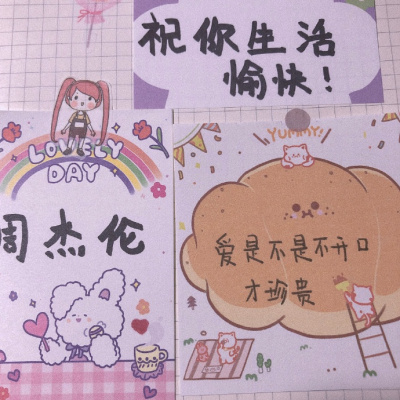 祝你生活
愉快！
LOVELY
DAY
周杰伦
YUMMY!
爱是不是不开口
才珍贵